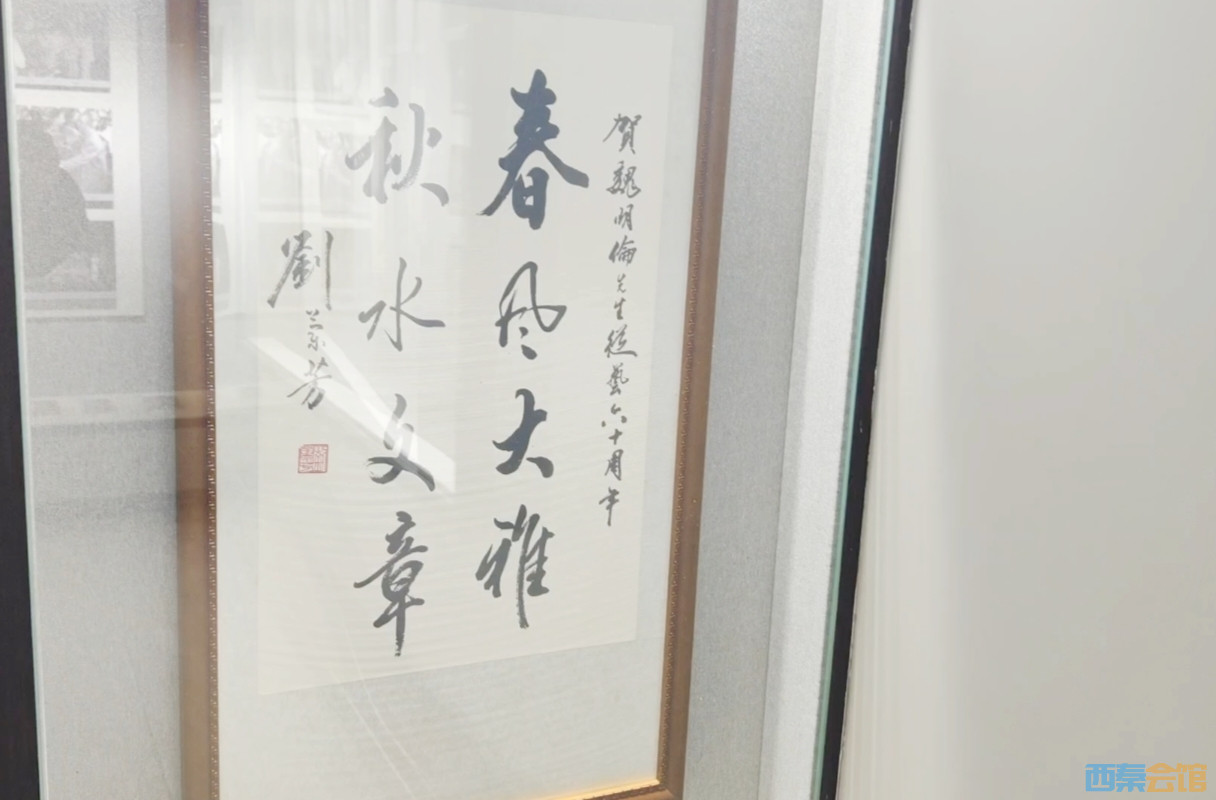 贺魏明倫先生從藝六十周年
春风大雅
秋水文章
劉兰芳
西秦会馆